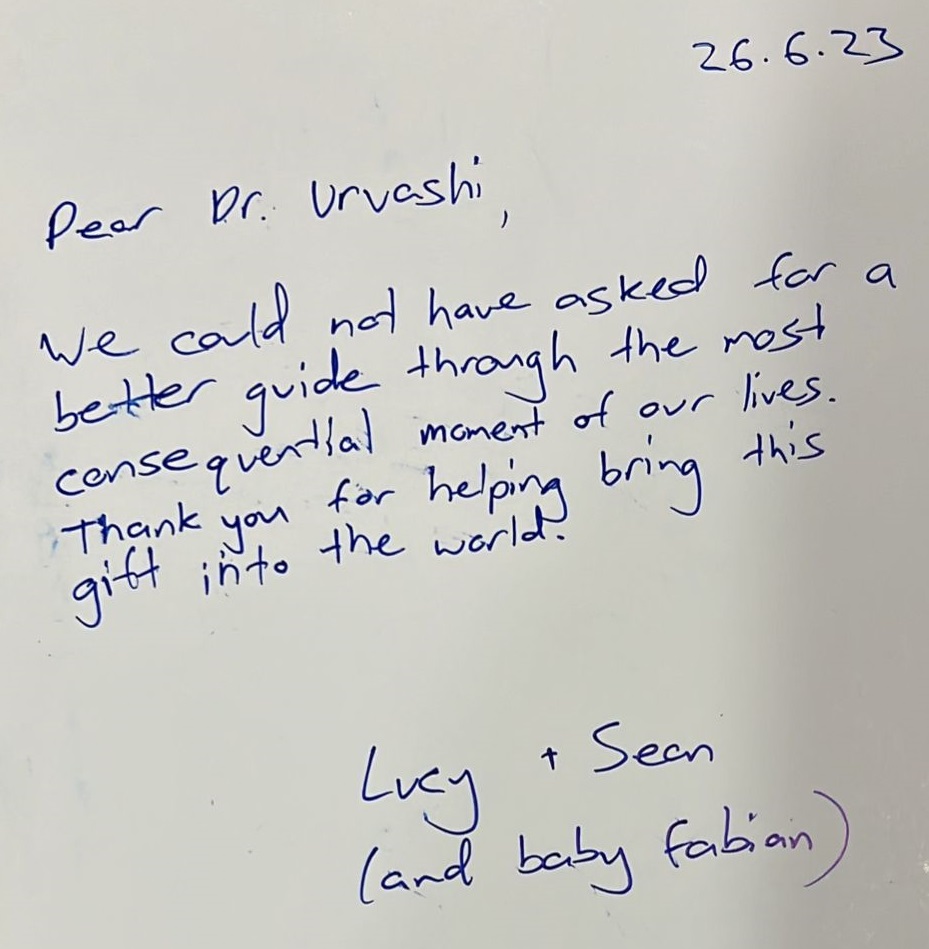 26.6.23
Dear Dr. Urvashi,
We could not have asked for a
better guide through the most
consequential moment of our lives.
Thank you for helping bring this
gift into the world.
Lucy + Sean
(and baby Fabian)